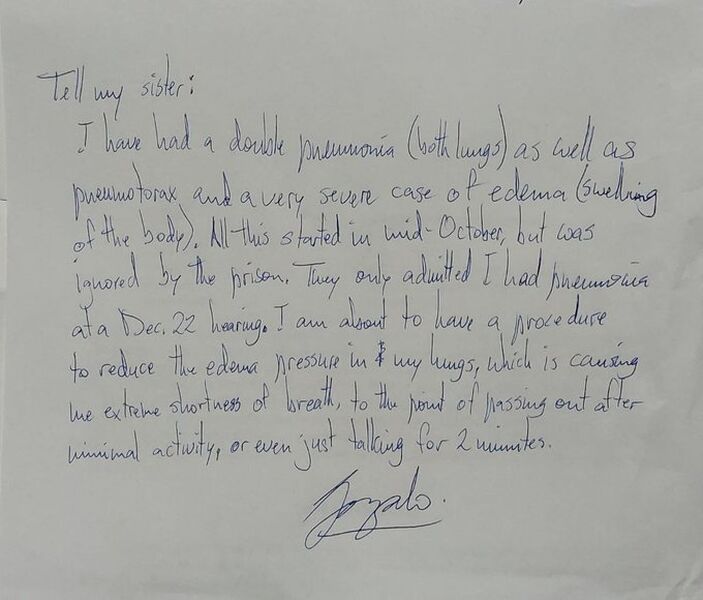 Tell my sister:
I have had a double pneumonia (both lungs) as well as
pneumotorax, and a very severe case of edema (swelling
of the body). All this started in mid-October, but was
ignored by the prison. They only admitted I had pneumonia
at a Dec. 22 hearing. I am about to have a procedure
to reduce the edema pressure in my lungs, which is causing
me extreme shortness of breath, to the point of passing out after
minimal activity, or even just talking for 2 minutes.
Gonzalo.